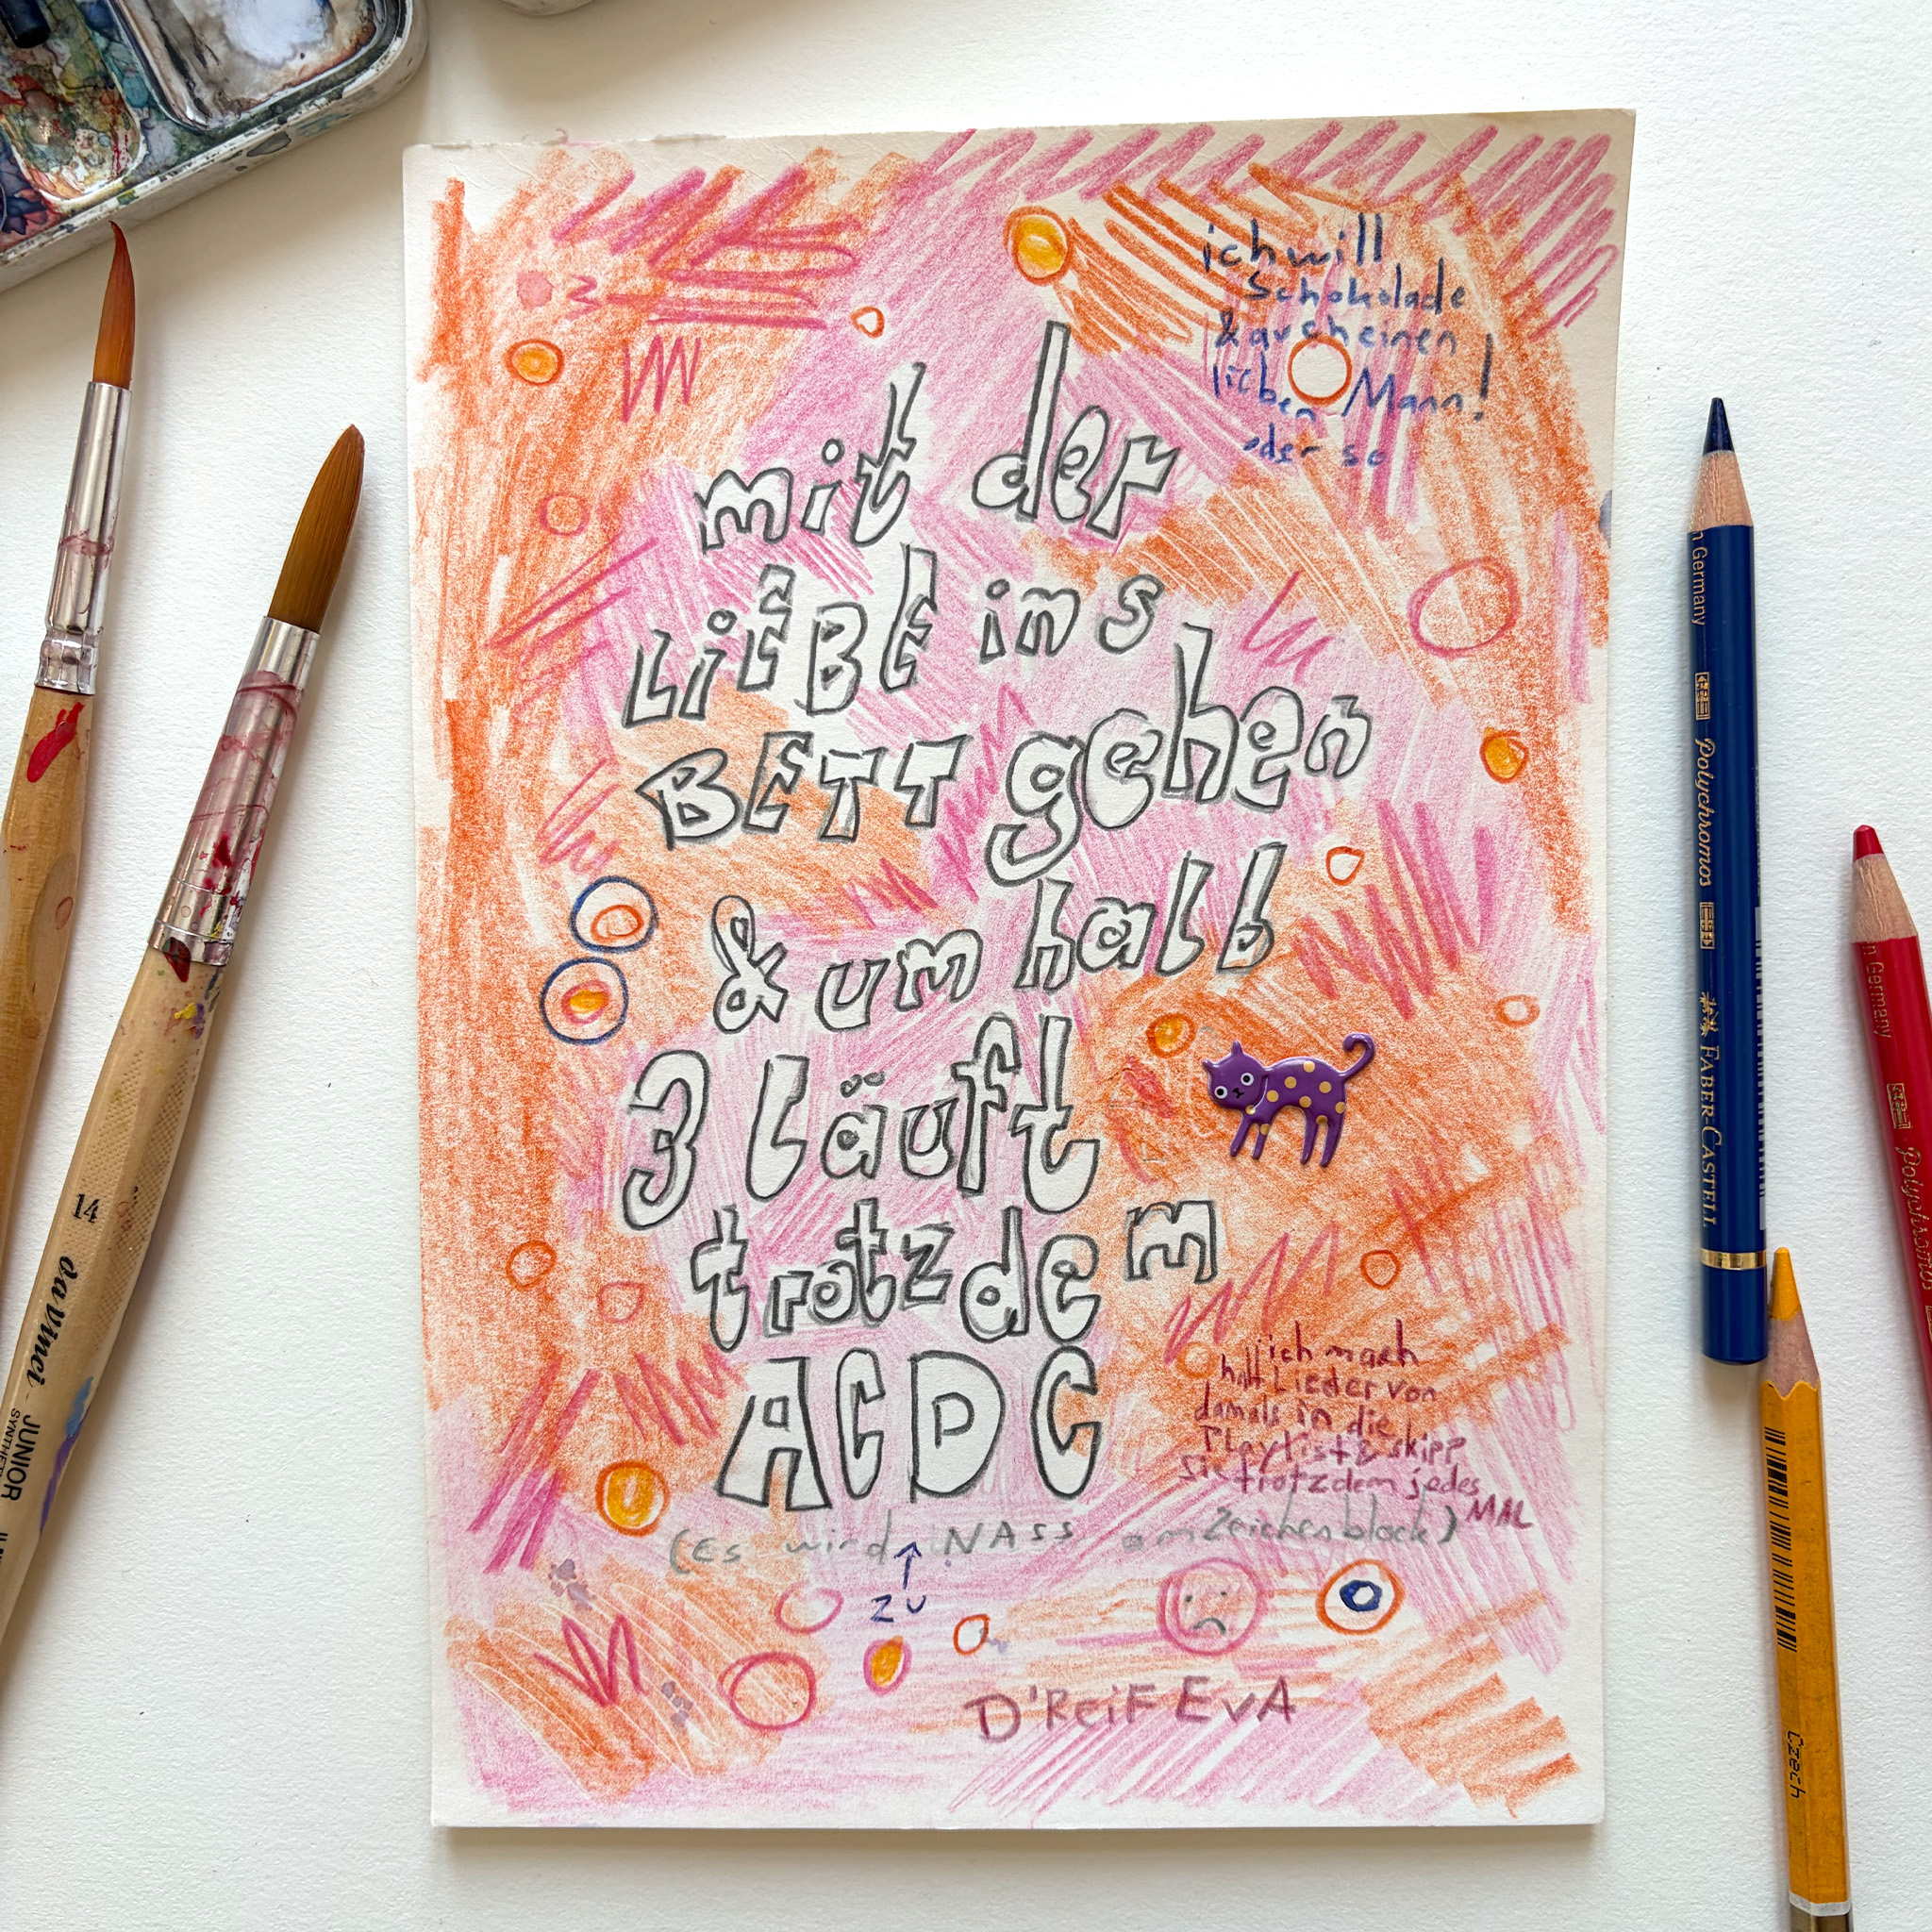 ich will
Schokolade
& auch einen
lieben Mann!
oder so
mit der
LiEBE ins
BETT gehen
& um halb
3 läuft
trotzdem
ACDC
ich mach
halt Lieder von
damals in die
Playlist & skipp
sie trotzdem jedes
MAL
(Es wird NASS am Zeichenblock)
↑
zu
D'ReiFEvA
14
daVinci
JUNIOR
SYNTHET
n Germany
Polychromos
FABER-CASTELL
n Germany
Polychromos
Czech